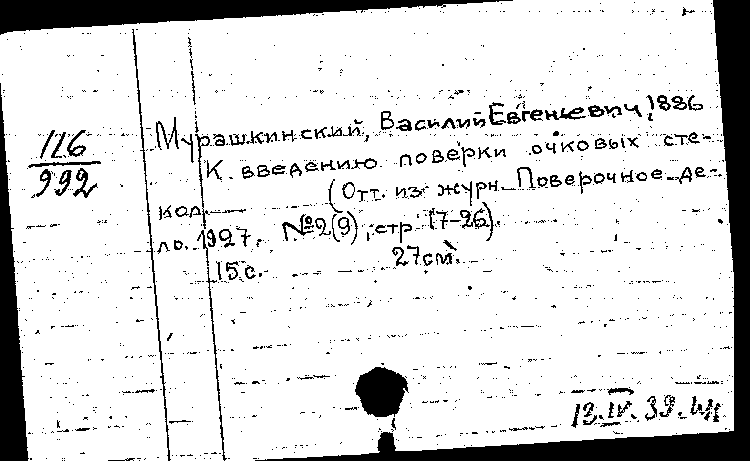 116
992
Мурашкинский, Василий Евгеньевич, 1886
К введению поверки очковых сте-
кол. (Отт. из журн. Поверочное де-
ло. 1927. №2(9), стр 17-26).
15 с. 27 см.
13.IV.39.